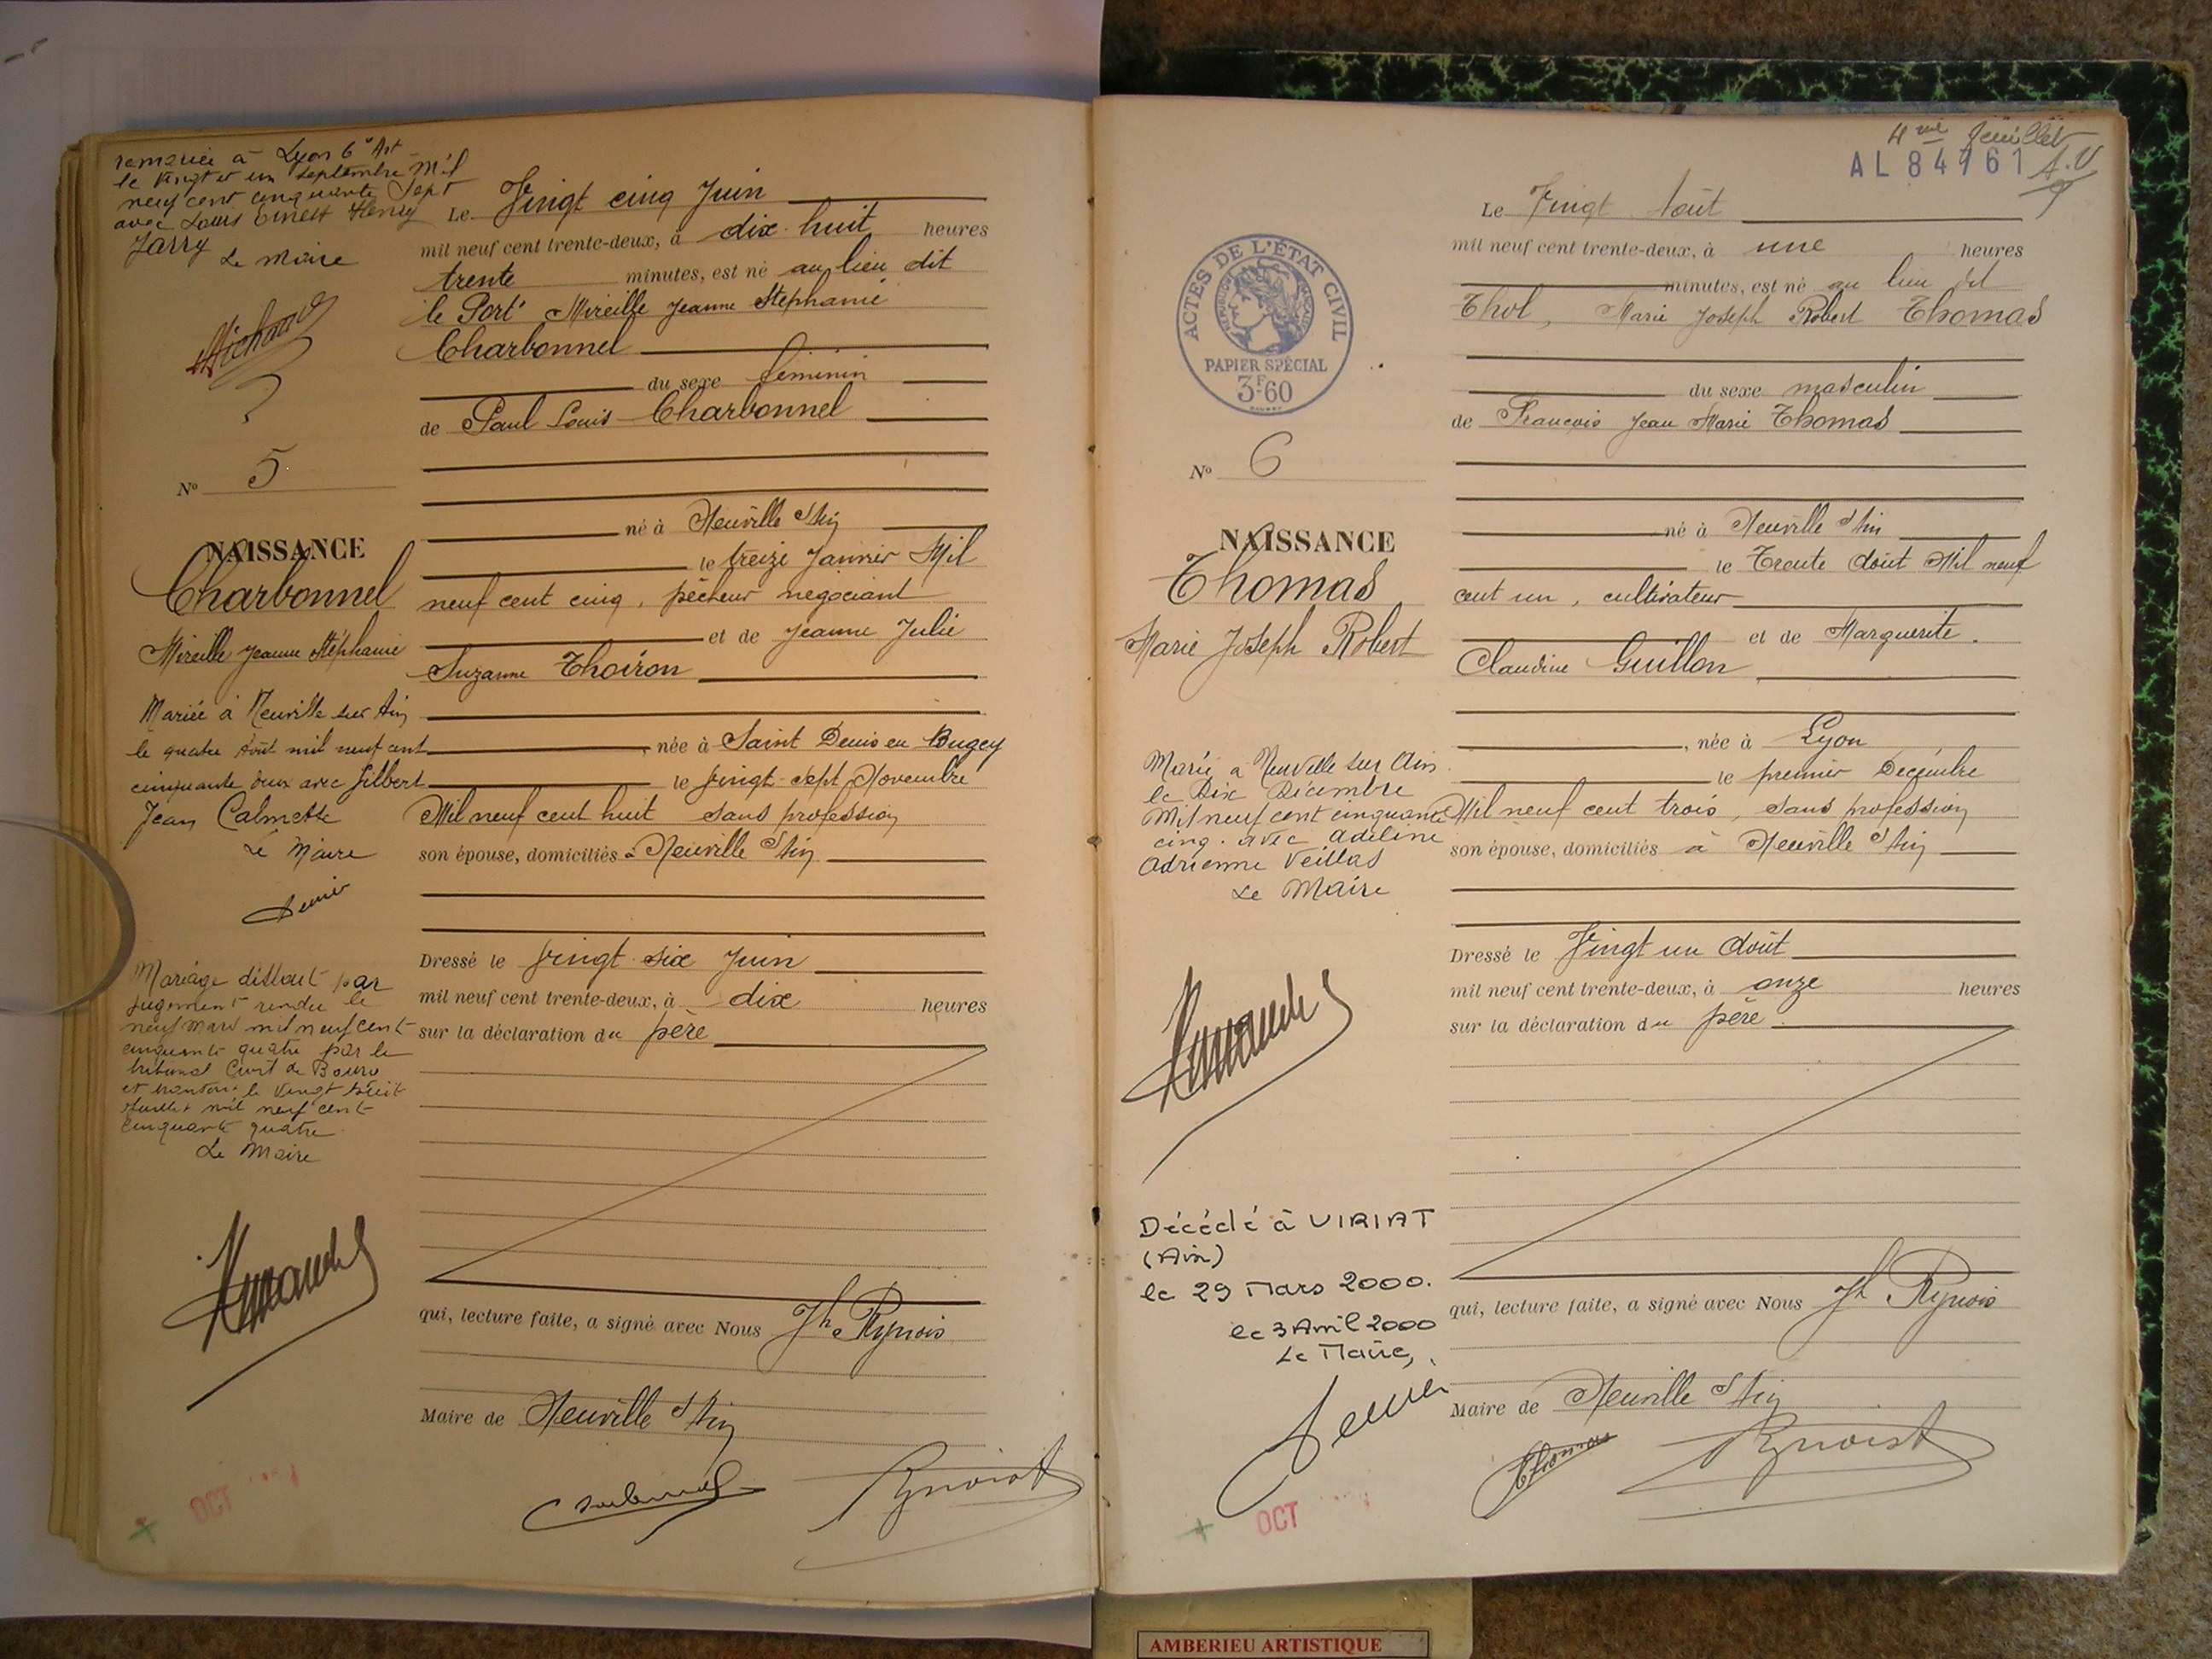 remariée à Lyon 6e Art
le vingt et un Septembre Mil
neuf cent cinquante Sept
avec Louis Ernest Henry
Jarry
Le Maire
N° 5
NAISSANCE
Charbonnel
Mireille Jeanne Stéphanie
Mariée à Neuville sur Ain
le quatre Août mil neuf cent
cinquante deux avec Gilbert
Jean Calmette
Le Maire
Mariage dissout par
jugement rendu le
neuf mars mil neuf cent
cinquante quatre par le
tribunal Civil de Bourg
et transcrit le vingt huit
Juillet mil neuf cent
cinquante quatre
Le Maire
OCT
Le Vingt cinq Juin
mil neuf cent trente-deux, à dix-huit heures
trente minutes, est né au lieu dit
le Port Mireille Jeanne Stéphanie
Charbonnel
du sexe féminin
de Paul Louis Charbonnel
né à Neuville s/Ain
le treize Janvier Mil
neuf cent cinq, pêcheur négociant
et de Jeanne Julie
Suzanne Thoiron
, née à Saint Denis en Bugey
le vingt-sept Novembre
Mil neuf cent huit sans profession
son épouse, domiciliés à Neuville s/Ain
Dressé le vingt-six Juin
mil neuf cent trente-deux, à dix heures
sur la déclaration du père
qui, lecture faite, a signé avec Nous Jh Rynois
Maire de Neuville s/Ain
4me feuillet
AL 84761
ACTES DE L'ÉTAT CIVIL
RÉPUBLIQUE FRANÇAISE
PAPIER SPÉCIAL
3F60
N° 6
NAISSANCE
Thomas
Marie Joseph Robert
Marié à Neuville sur Ain
le Dix Décembre
Mil neuf cent cinquante
cinq. avec Adeline
Adrienne Veillas
Le Maire
Décédé à VIRIAT
(Ain)
le 29 Mars 2000.
le 3 Avril 2000
Le Maire,
OCT
Le Vingt Août
mil neuf cent trente-deux, à une heures
minutes, est né au lieu dit
Thol, Marie Joseph Robert Thomas
du sexe masculin
de François Jean Marie Thomas
né à Neuville s/Ain
le Trente Août Mil neuf
cent un, cultivateur
et de Marguerite
Claudine Guillon
, née à Lyon
le premier Décembre
Mil neuf cent trois, sans profession
son épouse, domiciliés à Neuville s/Ain
Dressé le Vingt un Août
mil neuf cent trente-deux, à onze heures
sur la déclaration du père
qui, lecture faite, a signé avec Nous Jh Rynois
Maire de Neuville s/Ain
Thomas
AMBERIEU ARTISTIQUE